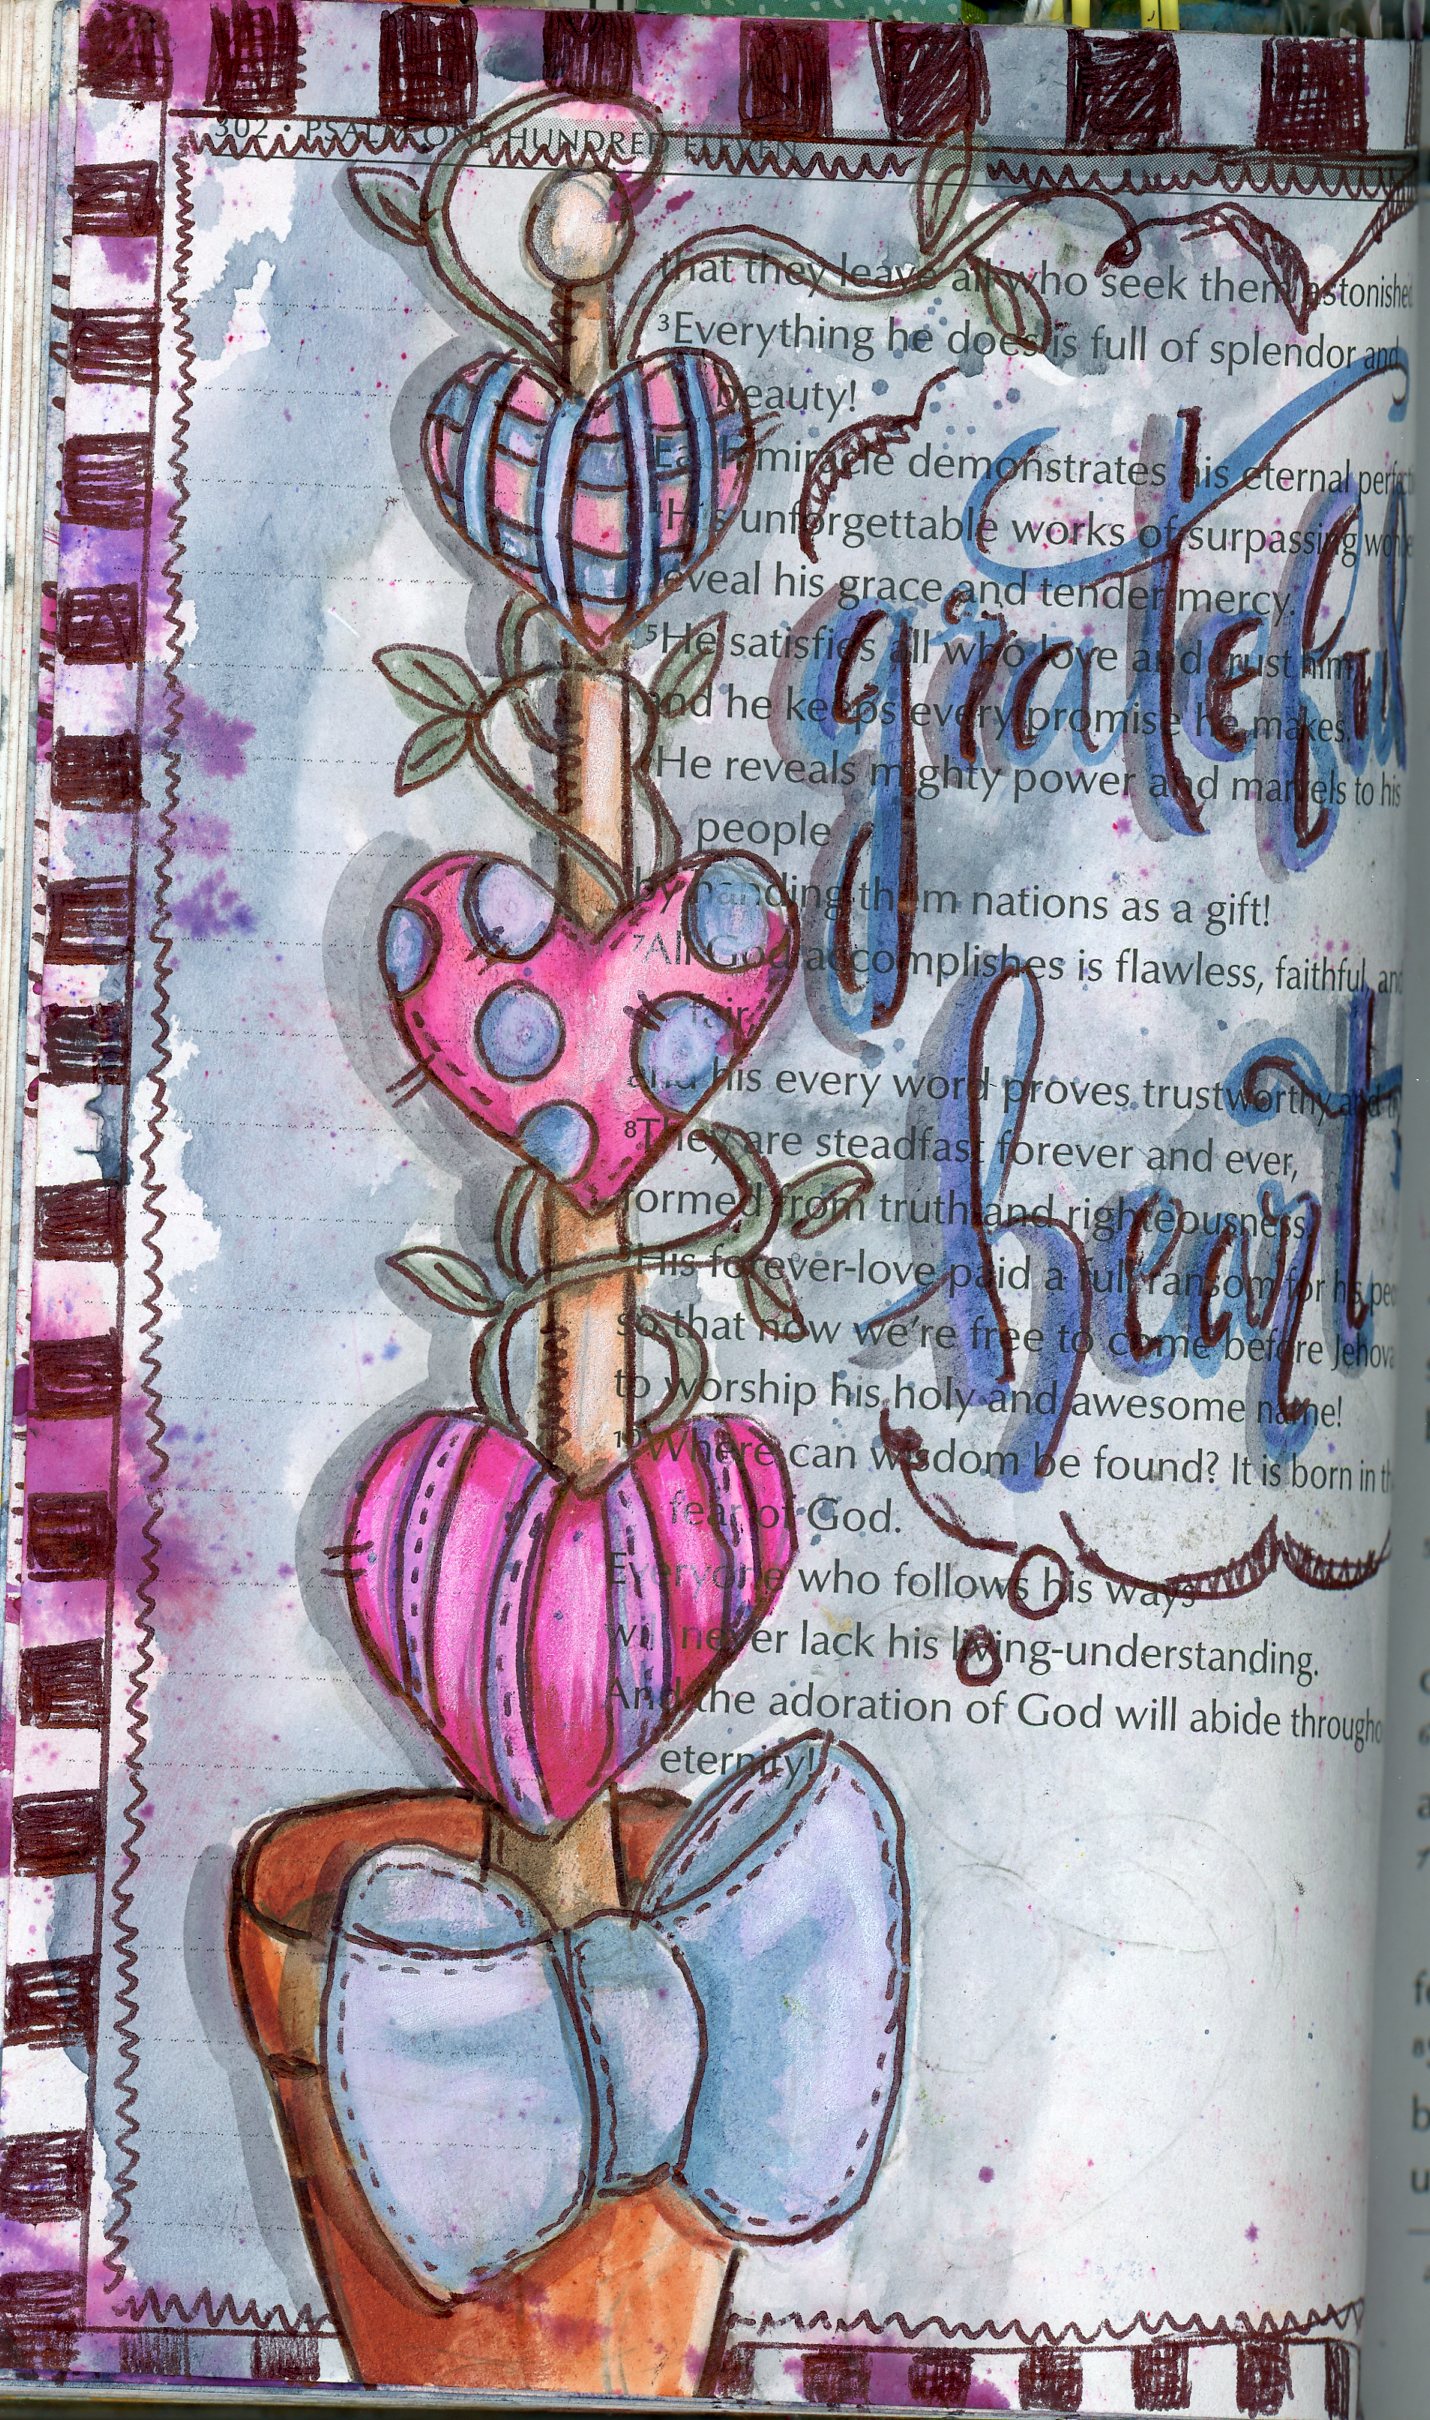 302 • PSALM ONE HUNDRED ELEVEN
that they leave all who seek them astonished
³Everything he does is full of splendor and
beauty!
Each miracle demonstrates his eternal
⁴His unforgettable works of surpassing
reveal his grace and tender mercy.
⁵He satisfies all who love and trust him,
and he keeps every promise he makes.
He reveals mighty power and marvels to his
people
by handing them nations as a gift!
⁷All God accomplishes is flawless, faithful, and
fair,
and his every word proves trustworthy and
⁸They are steadfast forever and ever,
formed from truth and righteousness.
⁹His forever-love paid a full ransom for his
so that now we're free to come before
to worship his holy and awesome name!
¹⁰Where can wisdom be found? It is born in
fear of God.
Everyone who follows his ways
will never lack his living-understanding.
And the adoration of God will abide
eternity!
grateful
heart